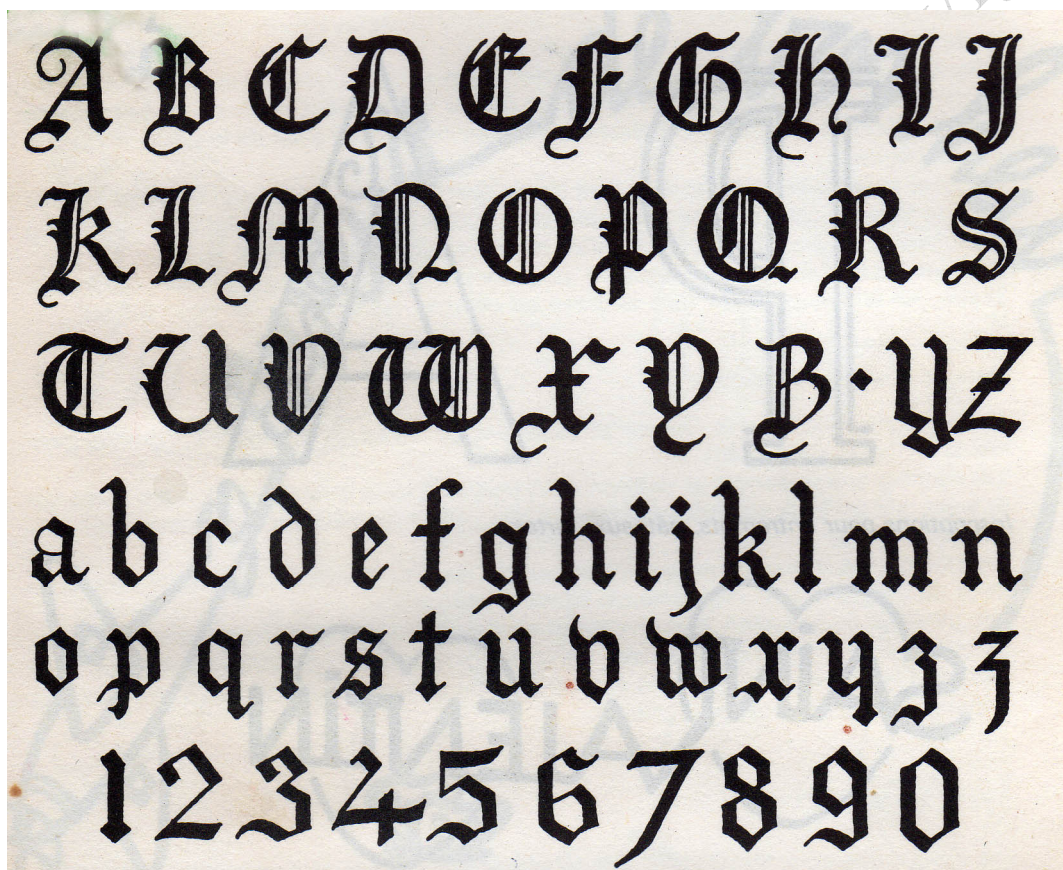 A B C D E F G H I J
K L M N O P Q R S
T U V W X Y Z · Y Z
a b c d e f g h i j k l m n
o p q r s t u v w x y z z
1 2 3 4 5 6 7 8 9 0